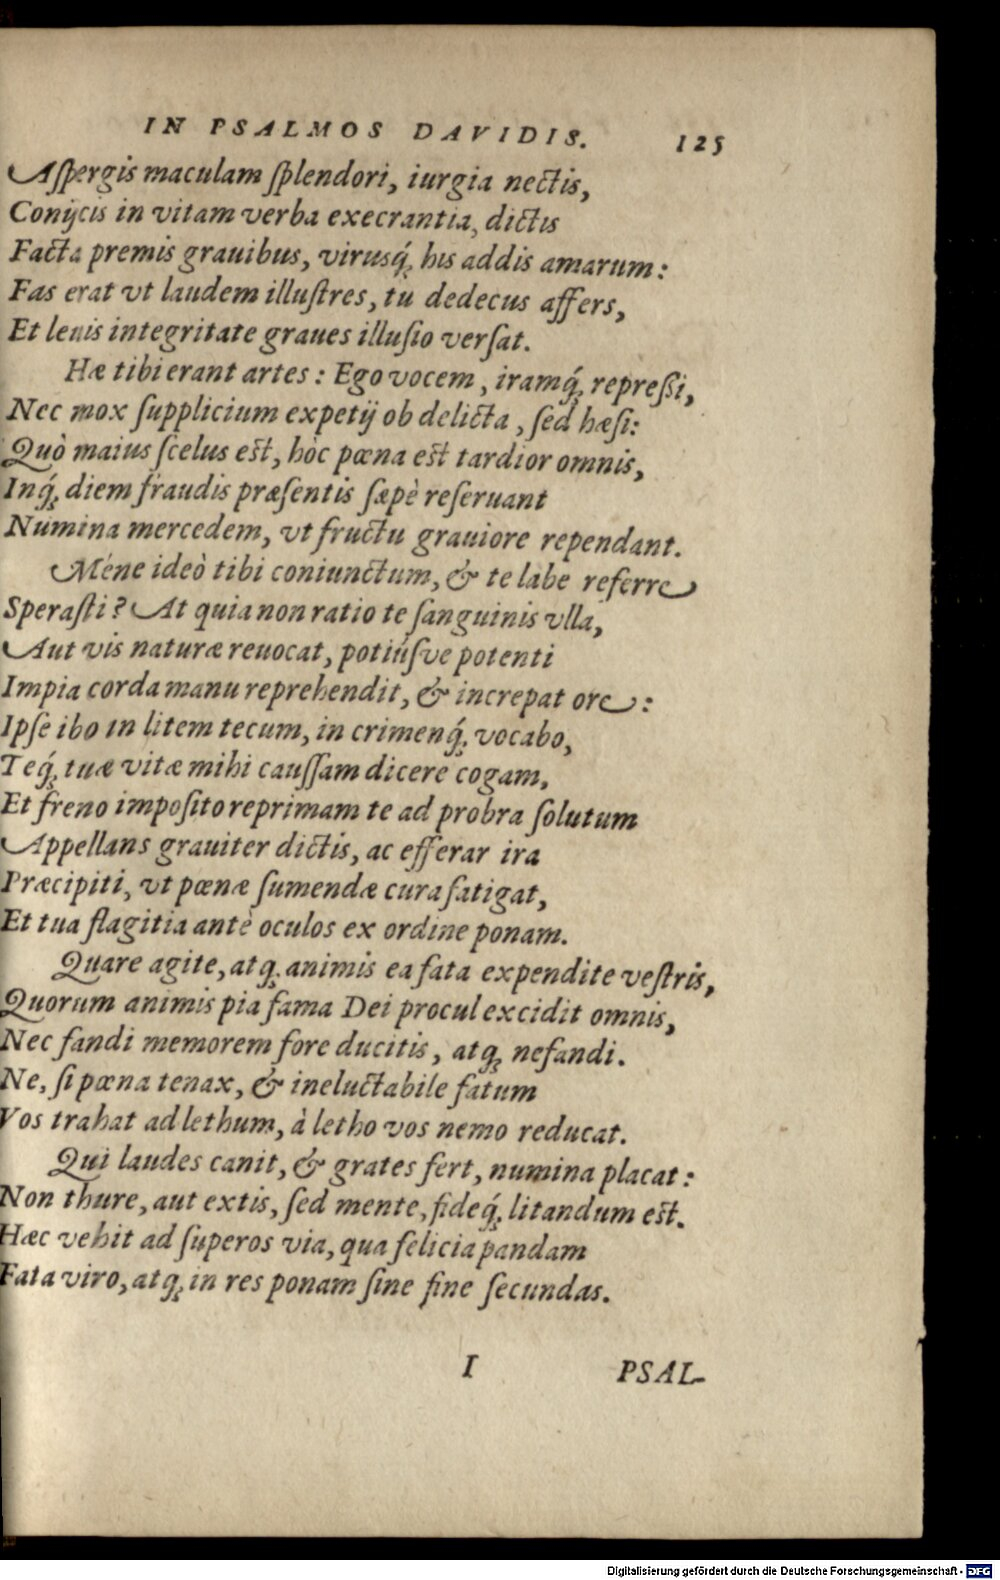 IN PSALMOS DAVIDIS. 125
Aſpergis maculam ſplendori, iurgia nectis,
Conijcis in vitam verba execrantia, dictis
Facta premis grauibus, virusq́; his addis amarum:
Fas erat vt laudem illuſtres, tu dedecus affers,
Et leuis integritate graues illuſio verſat.
Hæ tibi erant artes: Ego vocem, iramq́; repreßi,
Nec mox ſupplicium expetij ob delicta, ſed hæſi:
Quò maius ſcelus eſt, hòc pœna eſt tardior omnis,
Inq́; diem fraudis præſentis ſæpè reſeruant
Numina mercedem, vt fructu grauiore rependant.
Méne ideò tibi coniunctum, & te labe referre
Speraſti? At quia non ratio te ſanguinis vlla,
Aut vis naturæ reuocat, potiúſve potenti
Impia corda manu reprehendit, & increpat ore:
Ipſe ibo in litem tecum, in crimenq́; vocabo,
Teq́; tuæ vitæ mihi cauſſam dicere cogam,
Et freno impoſito reprimam te ad probra ſolutum
Appellans grauiter dictis, ac efferar ira
Præcipiti, vt pœnæ ſumendæ cura fatigat,
Et tua flagitia antè oculos ex ordine ponam.
Quare agite, atq; animis ea fata expendite veſtris,
Quorum animis pia fama Dei procul excidit omnis,
Nec fandi memorem fore ducitis, atq; nefandi.
Ne, ſi pœna tenax, & ineluctabile fatum
Vos trahat ad lethum, à letho vos nemo reducat.
Qui laudes canit, & grates fert, numina placat:
Non thure, aut extis, ſed mente, fideq́; litandum eſt.
Hæc vehit ad ſuperos via, qua felicia pandam
Fata viro, atq; in res ponam ſine fine ſecundas.
I PSAL-
Digitalisierung gefördert durch die Deutsche Forschungsgemeinschaft - DFG